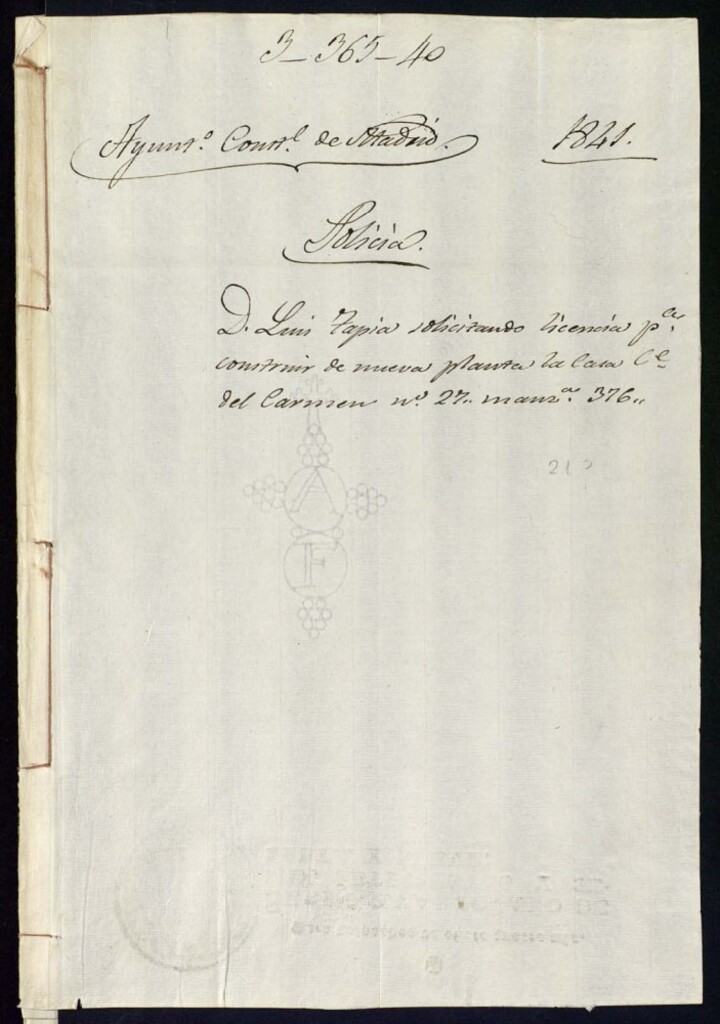 3-365-40
Ayunt.º Const.l de Madrid. 1841.
Policía.
D. Luis Tapia solicitando licencia p.ª
construir de nueva planta la Casa C.e
del Carmen nº 27.. manz.ª 376..
21
A
F